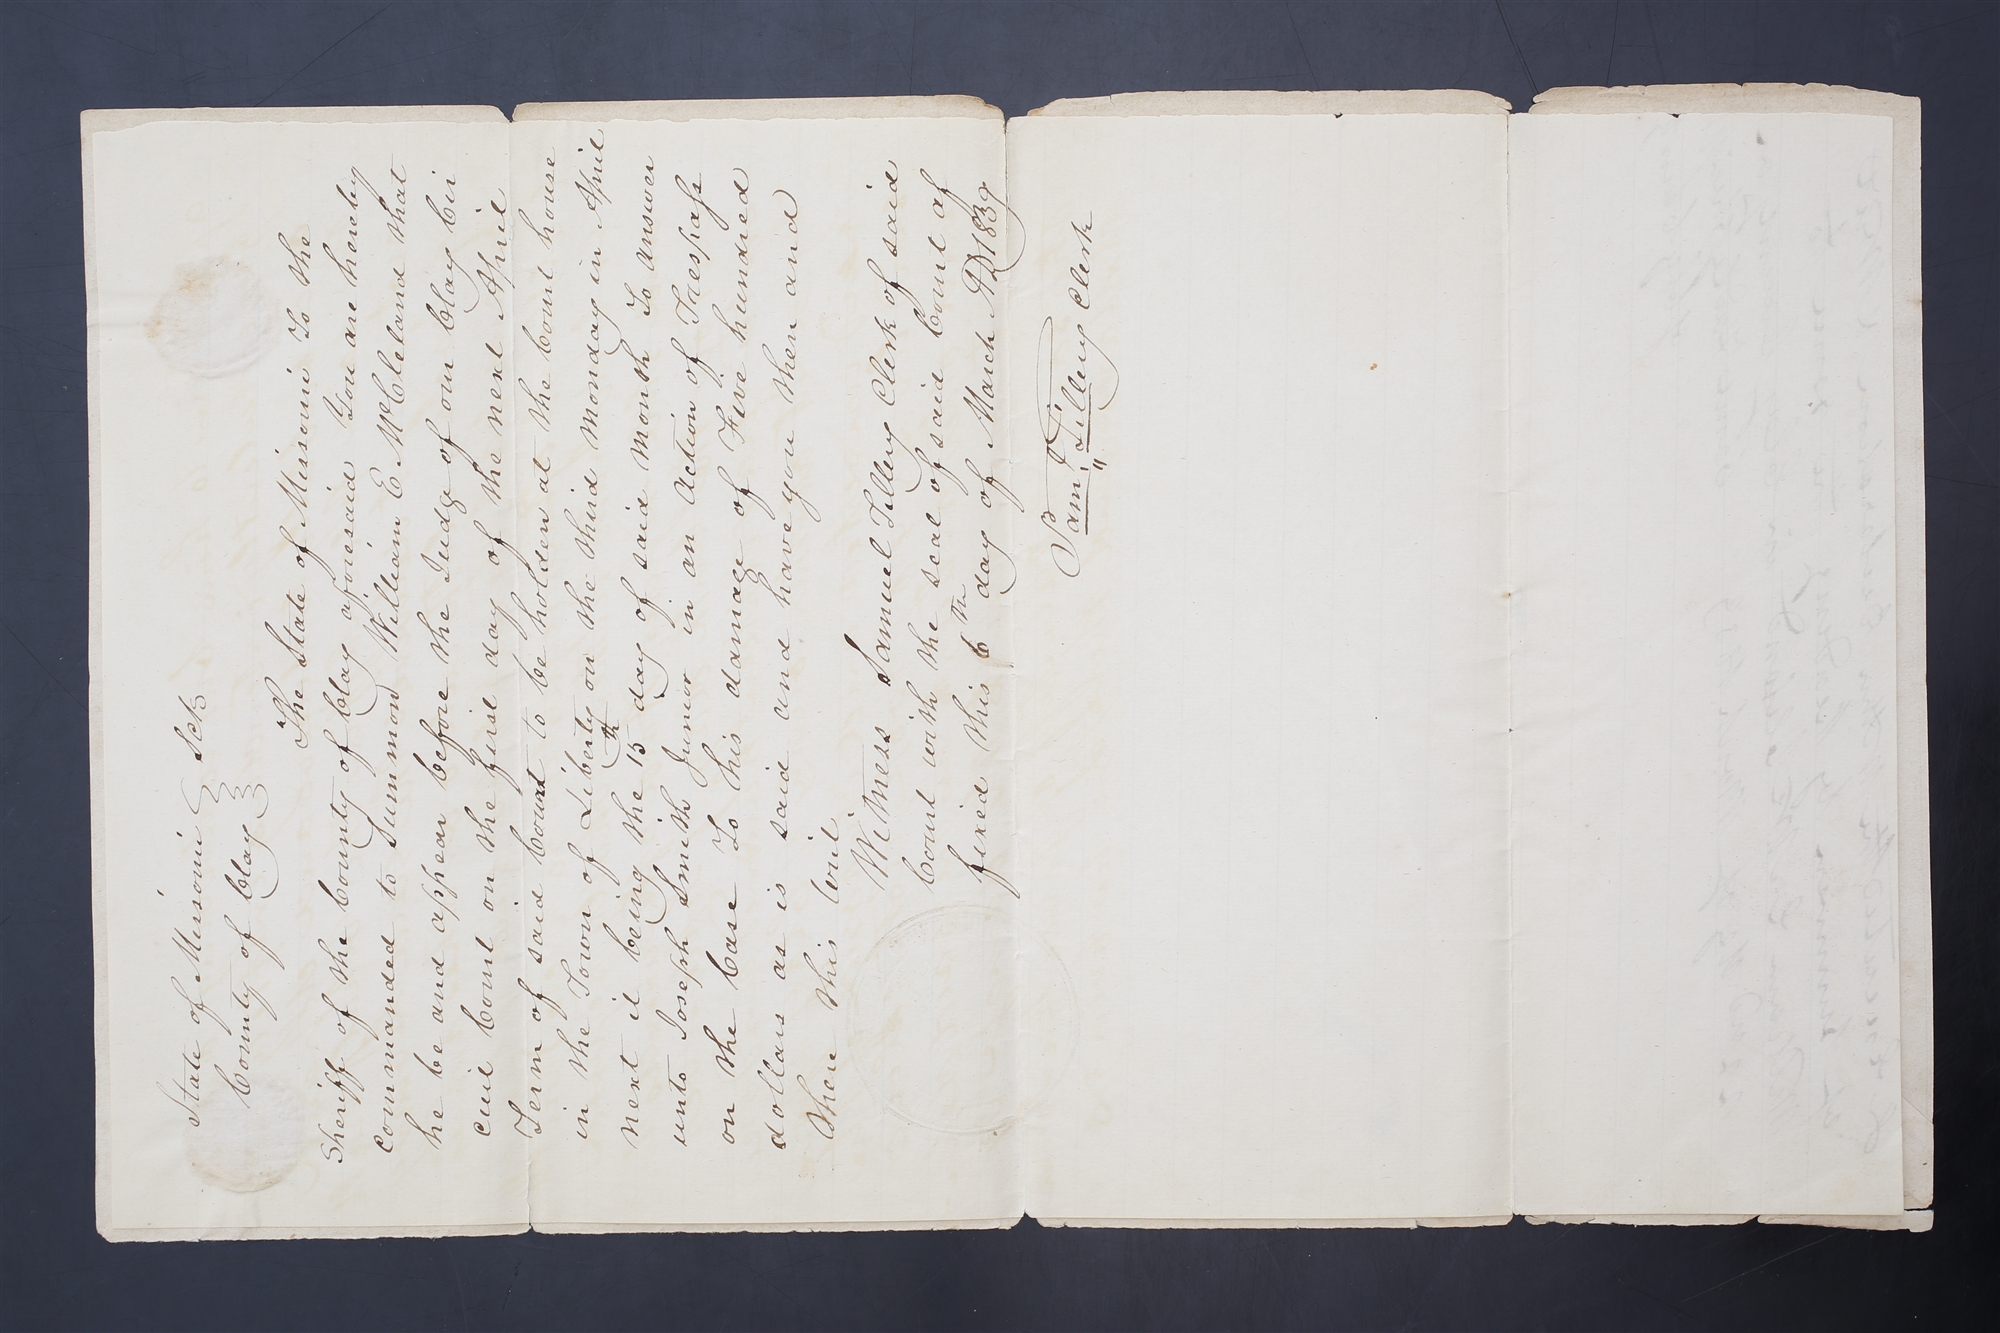 State of Missouri } Sct
County of Clay }
The State of Missouri To the
Sheriff of the County of Clay aforesaid You are hereby
commanded to Summon William E McCleland that
he be and appear before the Judge of our Clay Cir
cuit Court on the first day of the next April
Term of said Court to be holden at the Court house
in the Town of Liberty on the third Monday in April
next it being the 15th day of said month To answer
unto Joseph Smith Junior in an Action of Trespass
on the Case To his damage of Five hundred
dollars as is said and have you then and
there this writ
Witness Samuel Tillery Clerk of said
Court with the seal of said Court af
fixed this 6th day of March AD 1839
Saml Tillery Clerk